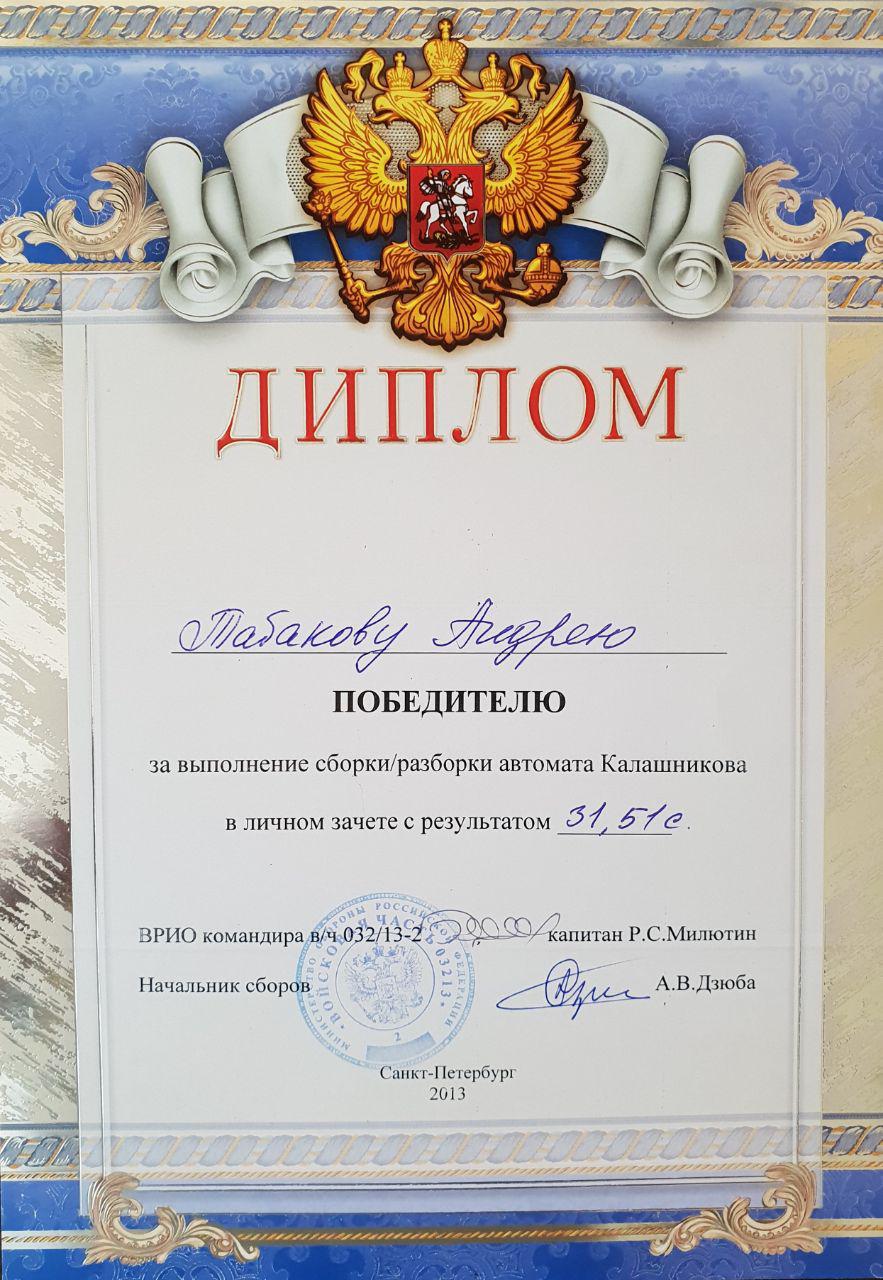 ДИПЛОМ
Табакову Андрею
ПОБЕДИТЕЛЮ
за выполнение сборки/разборки автомата Калашникова
в личном зачете с результатом 31,51с.
ВРИО командира в/ч 032/13-2 капитан Р.С.Милютин
Начальник сборов А.В.Дзюба
МИНИСТЕРСТВО ОБОРОНЫ РОССИЙСКОЙ ФЕДЕРАЦИИ
ВОЙСКОВАЯ ЧАСТЬ 03213
2
Санкт-Петербург
2013